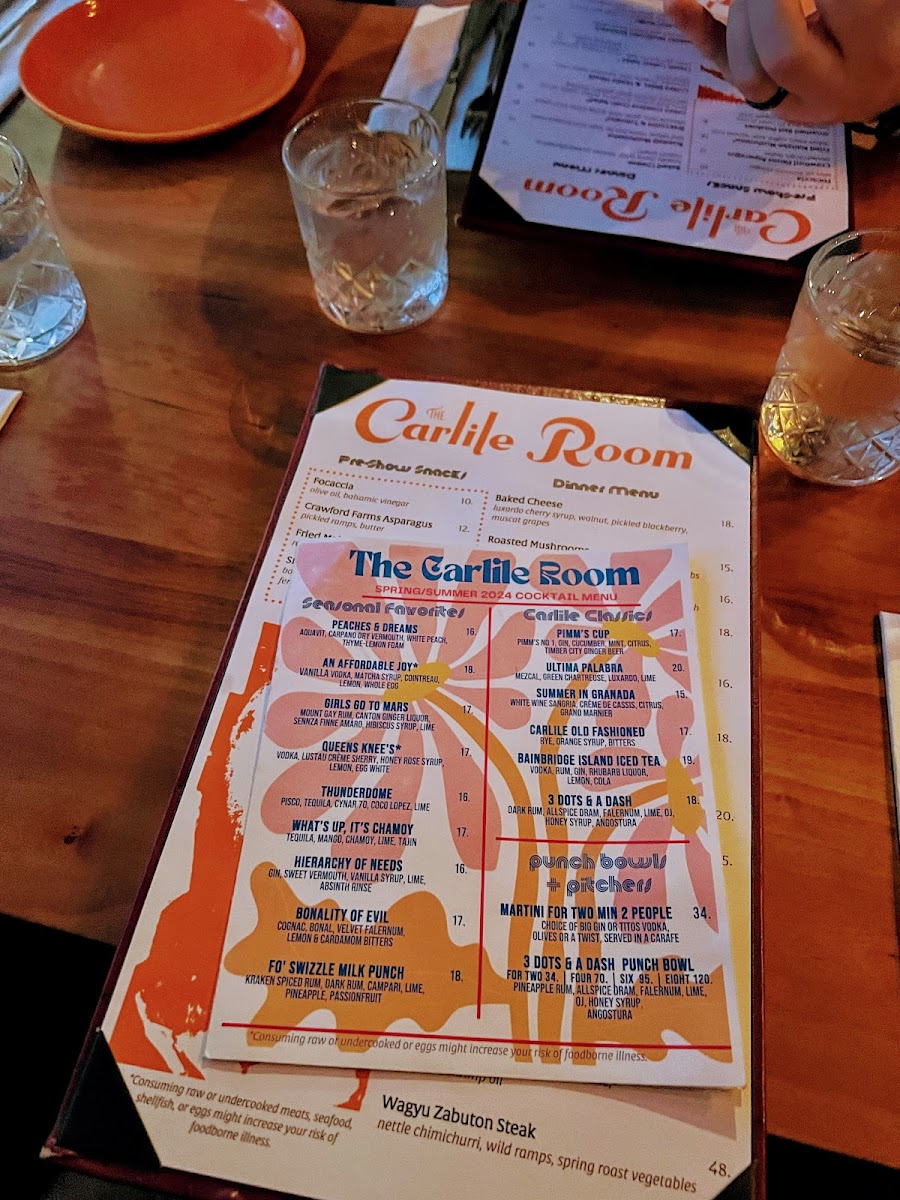 THE
Carlile Room
Pre-Show Snacks
Focaccia 10.
olive oil, balsamic vinegar
Crawford Farms Asparagus 12.
pickled ramps, butter
Fried
Dinner Menu
Baked Cheese 18.
luxardo cherry syrup, walnut, pickled blackberry,
muscat grapes
Roasted Mushrooms
15.
16.
18.
16.
18.
20.
5.
The Carlile Room
SPRING/SUMMER 2024 COCKTAIL MENU
Seasonal Favorites
PEACHES & DREAMS 16.
AQUAVIT, CARPANO DRY VERMOUTH, WHITE PEACH,
THYME-LEMON FOAM
AN AFFORDABLE JOY* 18.
VANILLA VODKA, MATCHA SYRUP, COINTREAU,
LEMON, WHOLE EGG
GIRLS GO TO MARS 17.
MOUNT GAY RUM, CANTON GINGER LIQUOR,
SENNZA FINNE AMARO, HIBISCUS SYRUP, LIME
QUEENS KNEE'S* 17.
VODKA, LUSTAU CRÈME SHERRY, HONEY ROSE SYRUP,
LEMON, EGG WHITE
THUNDERDOME 16.
PISCO, TEQUILA, CYNAR 70, COCO LOPEZ, LIME
WHAT'S UP, IT'S CHAMOY 17.
TEQUILA, MANGO, CHAMOY, LIME, TAJIN
HIERARCHY OF NEEDS 16.
GIN, SWEET VERMOUTH, VANILLA SYRUP, LIME,
ABSINTH RINSE
BONALITY OF EVIL 17.
COGNAC, BONAL, VELVET FALERNUM,
LEMON & CARDAMOM BITTERS
FO' SWIZZLE MILK PUNCH 18.
KRAKEN SPICED RUM, DARK RUM, CAMPARI, LIME,
PINEAPPLE, PASSIONFRUIT
Carlile Classics
PIMM'S CUP 17.
PIMM'S NO 1, GIN, CUCUMBER, MINT, CITRUS,
TIMBER CITY GINGER BEER
ULTIMA PALABRA 20.
MEZCAL, GREEN CHARTREUSE, LUXARDO, LIME
SUMMER IN GRANADA 15.
WHITE WINE SANGRIA, CRÈME DE CASSIS, CITRUS,
GRAND MARNIER
CARLILE OLD FASHIONED 17.
RYE, ORANGE SYRUP, BITTERS
BAINBRIDGE ISLAND ICED TEA 19.
VODKA, RUM, GIN, RHUBARB LIQUOR,
LEMON, COLA
3 DOTS & A DASH 18.
DARK RUM, ALLSPICE DRAM, FALERNUM, LIME, OJ,
HONEY SYRUP, ANGOSTURA
punch bowls
+ pitchers
MARTINI FOR TWO MIN 2 PEOPLE 34.
CHOICE OF BIG GIN OR TITOS VODKA,
OLIVES OR A TWIST, SERVED IN A CARAFE
3 DOTS & A DASH PUNCH BOWL
FOR TWO 34. | FOUR 70. | SIX 95. | EIGHT 120.
PINEAPPLE RUM, ALLSPICE DRAM, FALERNUM, LIME,
OJ, HONEY SYRUP,
ANGOSTURA
*Consuming raw or undercooked or eggs might increase your risk of foodborne illness.
*Consuming raw or undercooked meats, seafood,
shellfish, or eggs might increase your risk of
foodborne illness.
Wagyu Zabuton Steak
nettle chimichurri, wild ramps, spring roast vegetables 48.
THE
Carlile Room
Pre-Show Snacks
Dinner Menu
Focaccia
Baked Cheese